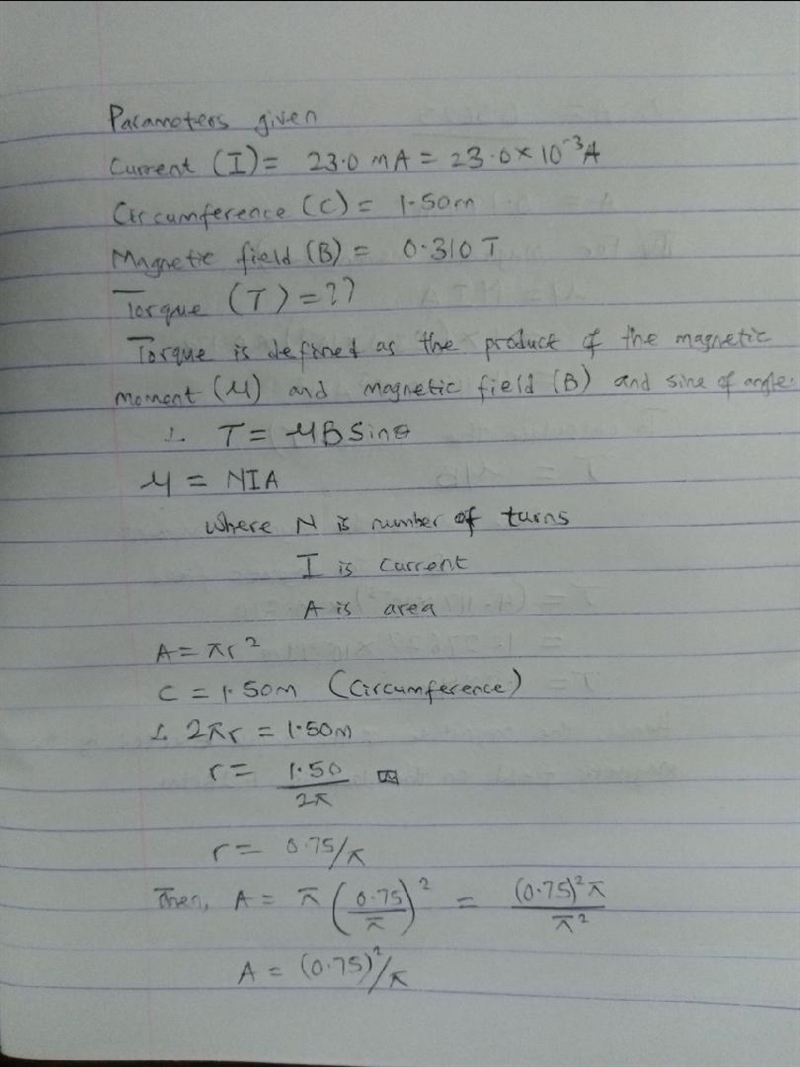 Parameters given
Current (I) = 23.0 mA = 23.0 × 10⁻³A
Circumference (C) = 1.50m
Magnetic field (B) = 0.310 T
Torque (T) = ??
Torque is defined as the product of the magnetic
moment (μ) and magnetic field (B) and sine of angle.
∴ T = μBSinθ
μ = NIA
where N is number of turns
I is current
A is area
A = πr²
C = 1.50m (Circumference)
∴ 2πr = 1.50m
r = 1.50/2π
r = 0.75/π
Then, A = π(0.75/π)² = (0.75)²π/π²
A = (0.75)²/π